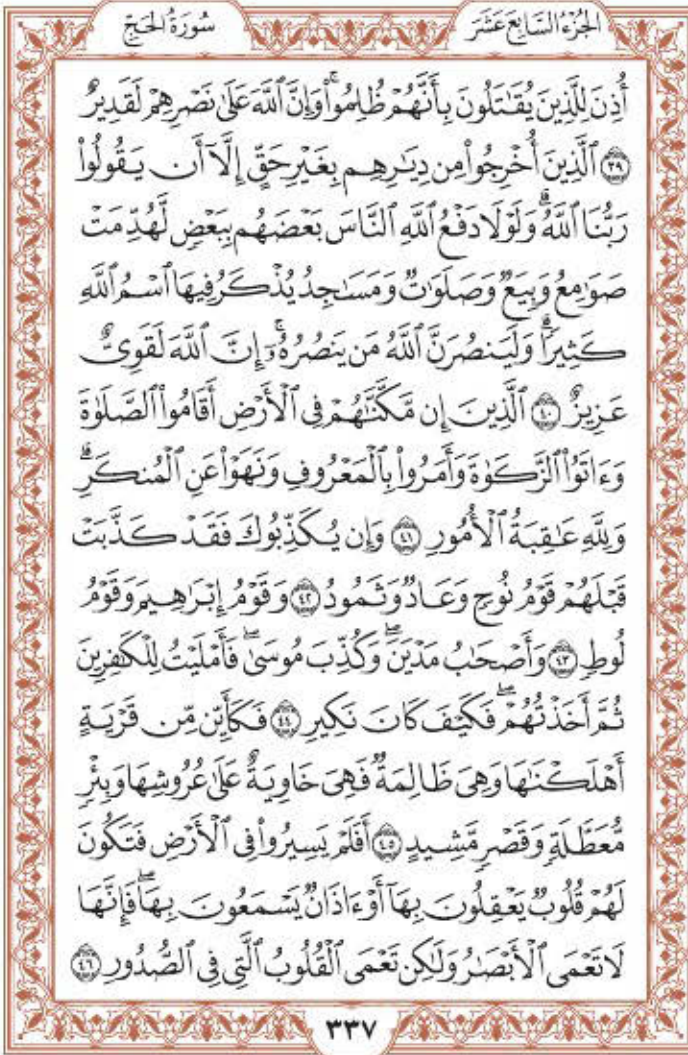 الجزء السابع عشر
سورة الحج
أُذِنَ لِلَّذِينَ يُقَٰتَلُونَ بِأَنَّهُمْ ظُلِمُوا۟ ۚ وَإِنَّ ٱللَّهَ عَلَىٰ نَصْرِهِمْ لَقَدِيرٌ
٣٩ ٱلَّذِينَ أُخْرِجُوا۟ مِن دِيَٰرِهِم بِغَيْرِ حَقٍّ إِلَّآ أَن يَقُولُوا۟
رَبُّنَا ٱللَّهُ ۗ وَلَوْلَا دَفْعُ ٱللَّهِ ٱلنَّاسَ بَعْضَهُم بِبَعْضٍ لَّهُدِّمَتْ
صَوَٰمِعُ وَبِيَعٌ وَصَلَوَٰتٌ وَمَسَٰجِدُ يُذْكَرُ فِيهَا ٱسْمُ ٱللَّهِ
كَثِيرًا ۗ وَلَيَنصُرَنَّ ٱللَّهُ مَن يَنصُرُهُۥٓ ۗ إِنَّ ٱللَّهَ لَقَوِىٌّ
عَزِيزٌ ٤٠ ٱلَّذِينَ إِن مَّكَّنَّٰهُمْ فِى ٱلْأَرْضِ أَقَامُوا۟ ٱلصَّلَوٰةَ
وَءَاتَوُا۟ ٱلزَّكَوٰةَ وَأَمَرُوا۟ بِٱلْمَعْرُوفِ وَنَهَوْا۟ عَنِ ٱلْمُنكَرِ ۗ
وَلِلَّهِ عَٰقِبَةُ ٱلْأُمُورِ ٤١ وَإِن يُكَذِّبُوكَ فَقَدْ كَذَّبَتْ
قَبْلَهُمْ قَوْمُ نُوحٍ وَعَادٌ وَثَمُودُ ٤٢ وَقَوْمُ إِبْرَٰهِيمَ وَقَوْمُ
لُوطٍ ٤٣ وَأَصْحَٰبُ مَدْيَنَ ۖ وَكُذِّبَ مُوسَىٰ فَأَمْلَيْتُ لِلْكَٰفِرِينَ
ثُمَّ أَخَذْتُهُمْ ۖ فَكَيْفَ كَانَ نَكِيرِ ٤٤ فَكَأَيِّن مِّن قَرْيَةٍ
أَهْلَكْنَٰهَا وَهِىَ ظَالِمَةٌ فَهِىَ خَاوِيَةٌ عَلَىٰ عُرُوشِهَا وَبِئْرٍ
مُّعَطَّلَةٍ وَقَصْرٍ مَّشِيدٍ ٤٥ أَفَلَمْ يَسِيرُوا۟ فِى ٱلْأَرْضِ فَتَكُونَ
لَهُمْ قُلُوبٌ يَعْقِلُونَ بِهَآ أَوْ ءَاذَانٌ يَسْمَعُونَ بِهَا ۖ فَإِنَّهَا
لَا تَعْمَى ٱلْأَبْصَٰرُ وَلَٰكِن تَعْمَى ٱلْقُلُوبُ ٱلَّتِى فِى ٱلصُّدُورِ ٤٦
٣٣٧